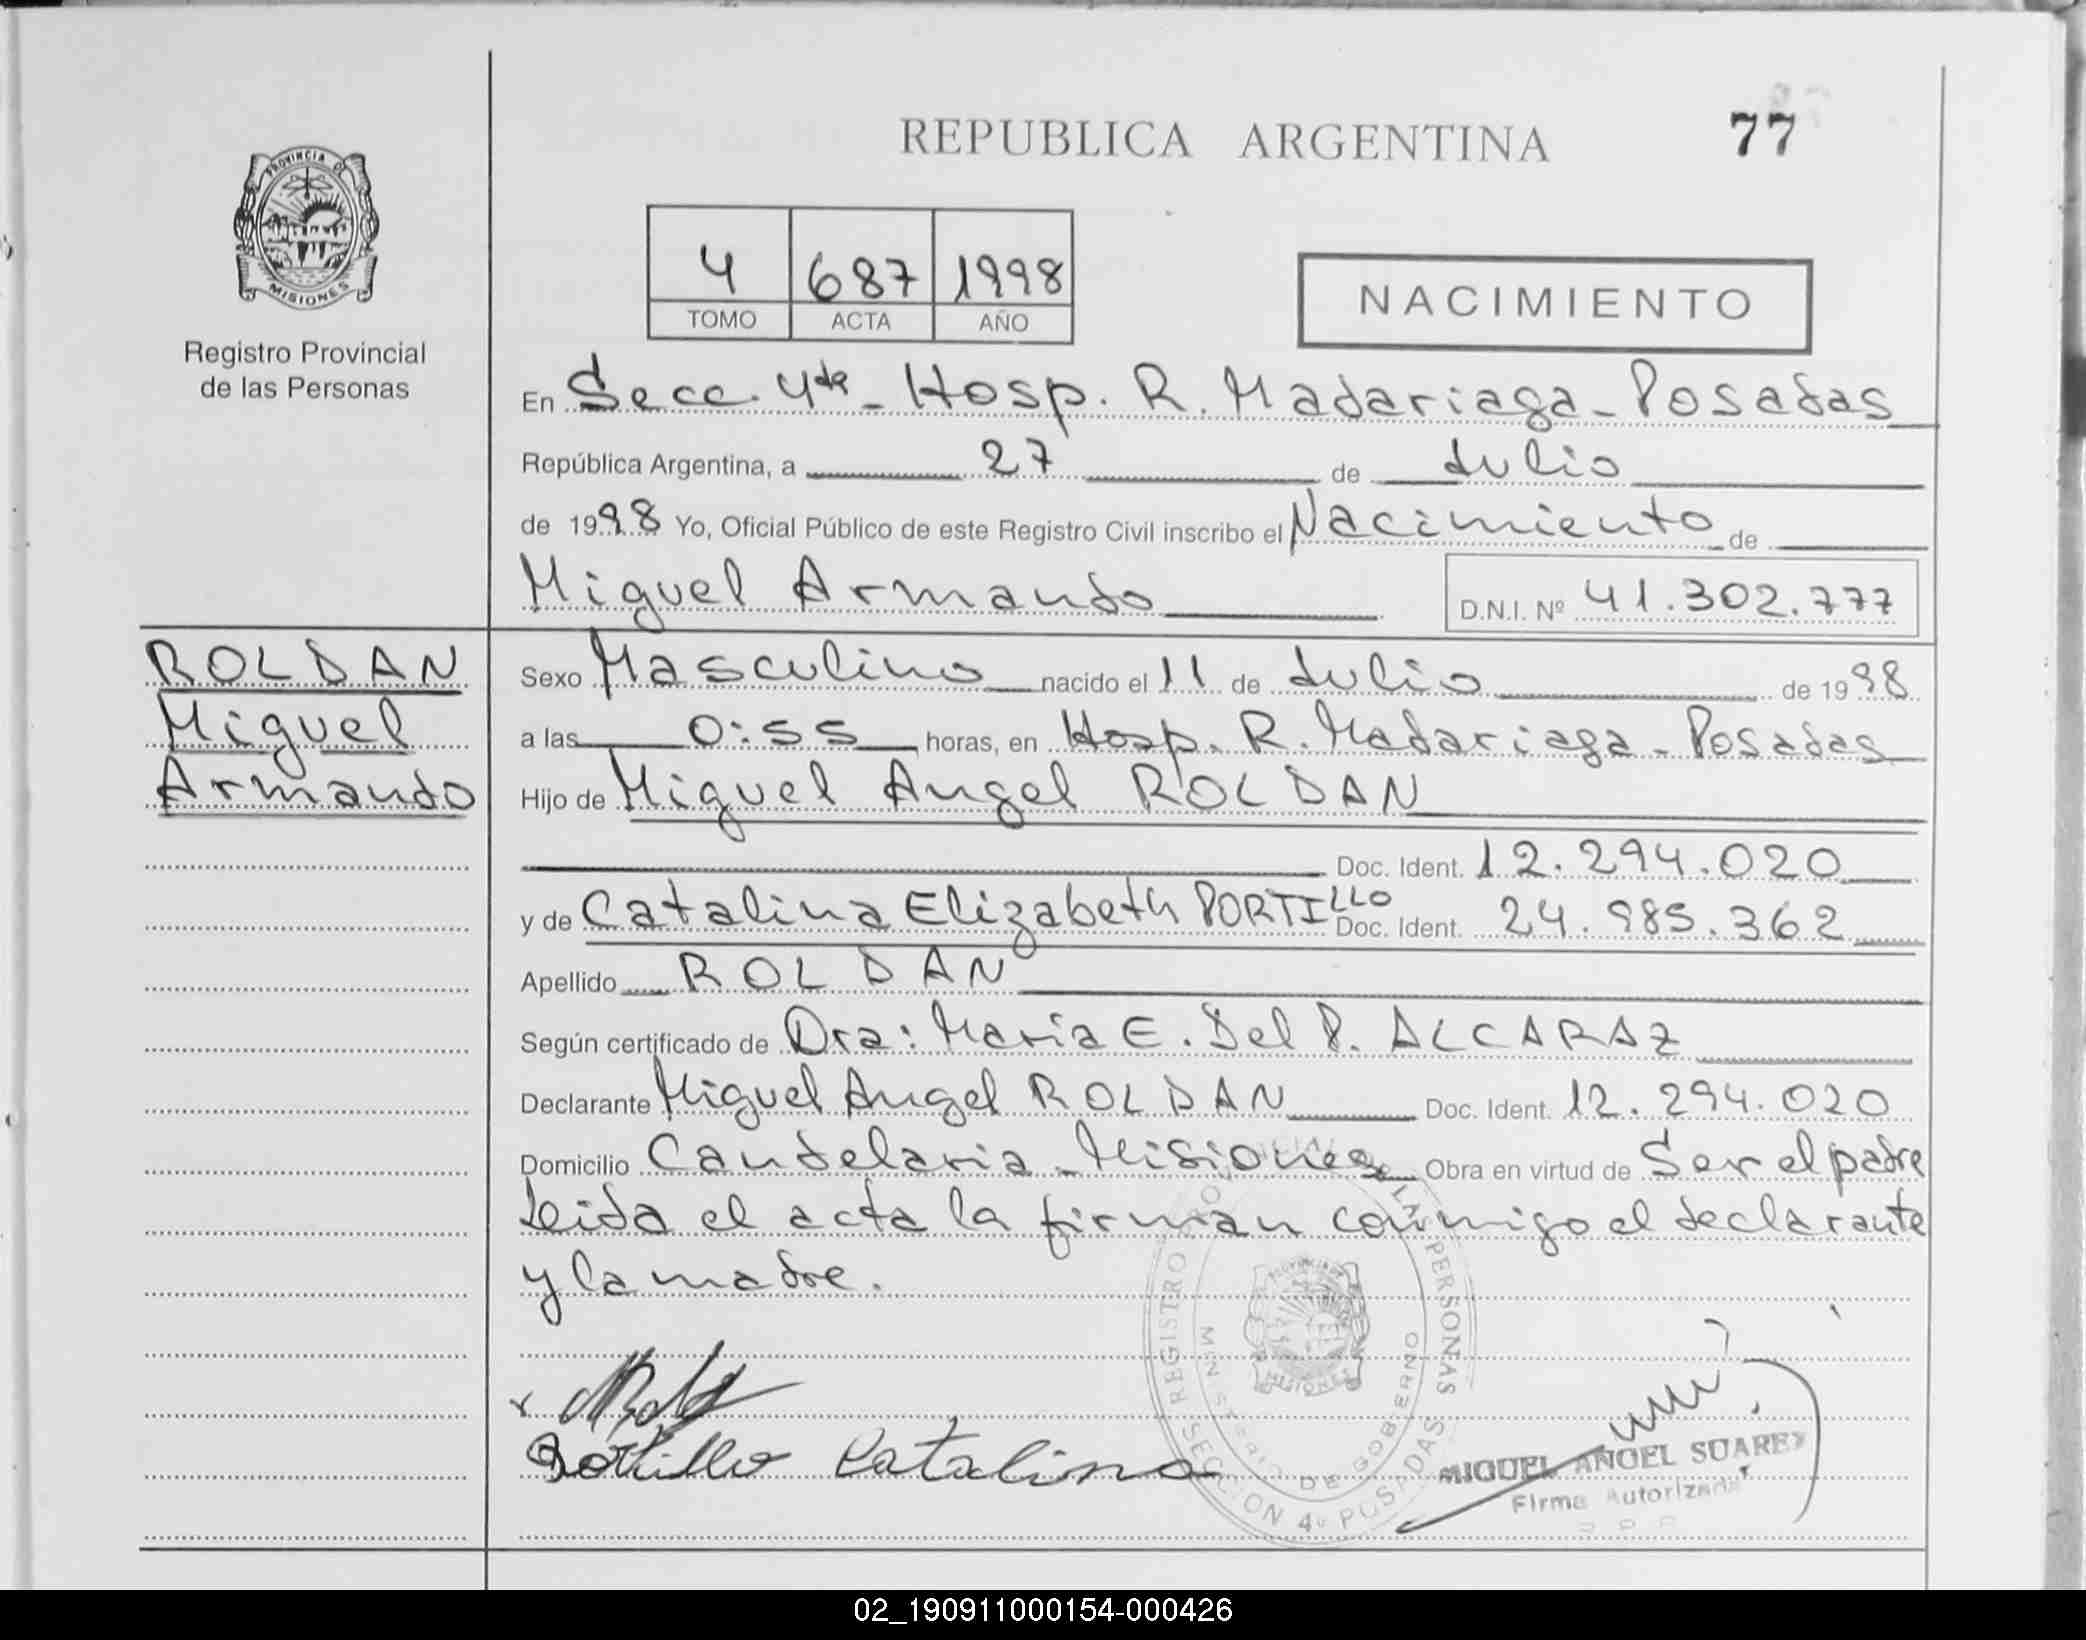 REPUBLICA ARGENTINA
77
PROVINCIA DE
MISIONES
Registro Provincial
de las Personas
4 687 1998
TOMO ACTA AÑO
NACIMIENTO
En Secc. 4ta - Hosp. R. Madariaga - Posadas
República Argentina, a 27 de Julio
de 1998 Yo, Oficial Público de este Registro Civil inscribo el Nacimiento de
Miguel Armando D.N.I. Nº 41.302.777
ROLDAN
Miguel
Armando
Sexo Masculino nacido el 11 de Julio de 1998
a las 0:55 horas, en Hosp. R. Madariaga - Posadas
Hijo de Miguel Angel ROLDAN
Doc. Ident. 12.294.020
y de Catalina Elizabeth PORTILLO Doc. Ident. 24.985.362
Apellido ROLDAN
Según certificado de Dra: Maria E. Del P. ALCARAZ
Declarante Miguel Angel ROLDAN Doc. Ident. 12.294.020
Domicilio Candelaria - Misiones Obra en virtud de Ser el padre
Leida el acta la firman conmigo el declarante
y la madre.
Portillo Catalina
REGISTRO PROVINCIAL DE LAS PERSONAS
MINISTERIO DE GOBIERNO
SECCION 4º POSADAS
MIGUEL ANGEL SUAREZ
Firma Autorizada
02_190911000154-000426